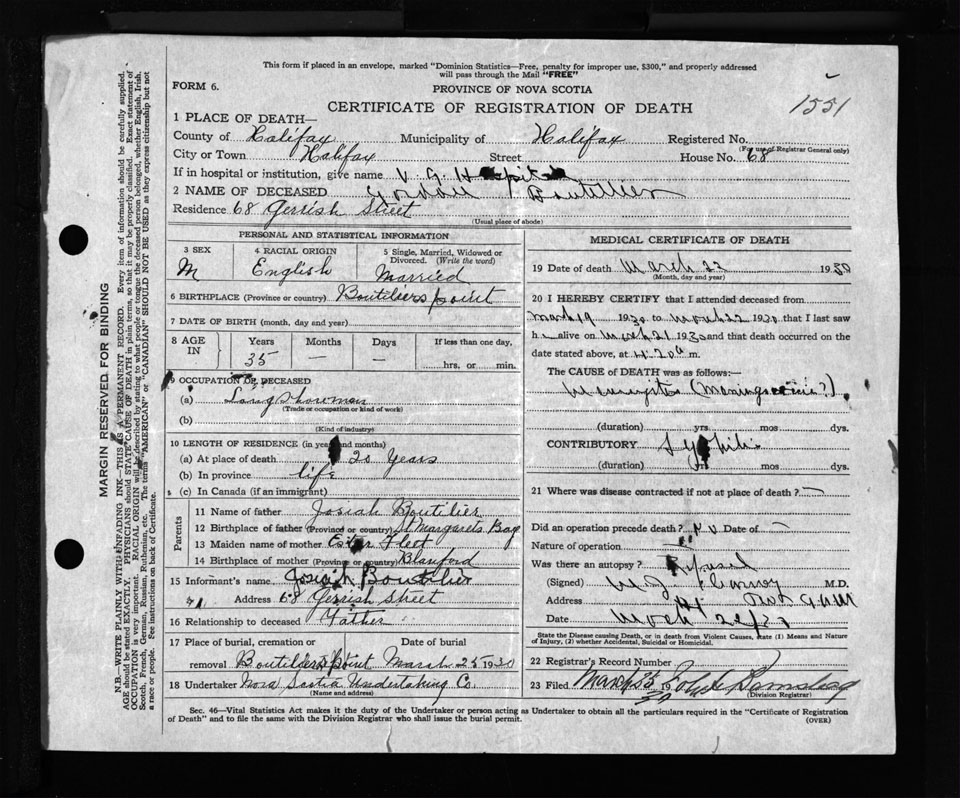 This form if placed in an envelope, marked "Dominion Statistics—Free, penalty for improper use, $300," and properly addressed
will pass through the Mail "FREE"
FORM 6.
PROVINCE OF NOVA SCOTIA
CERTIFICATE OF REGISTRATION OF DEATH
1551
1 PLACE OF DEATH—
County of Halifax Municipality of Halifax Registered No.
(For use of Registrar General only)
City or Town Halifax Street House No. 68
If in hospital or institution, give name V. G. Hospital
2 NAME OF DECEASED Gordon Boutilier
Residence 68 Gerrish Street
(Usual place of abode)
PERSONAL AND STATISTICAL INFORMATION
3 SEX 4 RACIAL ORIGIN 5 Single, Married, Widowed or
Divorced. (Write the word)
M English Married
6 BIRTHPLACE (Province or country) Boutiliers point
7 DATE OF BIRTH (month, day and year)
8 AGE IN Years Months Days If less than one day,
35 — — hrs. or min.
9 OCCUPATION OF DECEASED
(a) Longshoreman
(Trade or occupation or kind of work)
(b)
(Kind of industry)
10 LENGTH OF RESIDENCE (in years and months)
(a) At place of death 20 Years
(b) In province life
(c) In Canada (if an immigrant)
Parents
11 Name of father Josiah Boutilier
12 Birthplace of father (Province or country) St Margarets Bay
13 Maiden name of mother Fleet
14 Birthplace of mother (Province or country) Blanford
15 Informant's name Josiah Boutilier
" Address 68 Gerrish Street
16 Relationship to deceased Father
17 Place of burial, cremation or Date of burial
removal Boutiliers point March 25 1930
18 Undertaker Nova Scotia Undertaking Co.
(Name and address)
MEDICAL CERTIFICATE OF DEATH
19 Date of death March 22 1930
(Month, day and year)
20 I HEREBY CERTIFY that I attended deceased from
March 19 1930 to March 22 1930 that I last saw
h alive on March 21 1930 and that death occurred on the
date stated above, at 4.20 a m.
The CAUSE of DEATH was as follows:—
Meningitis
(duration) yrs. mos. dys.
CONTRIBUTORY Syphilis
(duration) yrs mos dys.
21 Where was disease contracted if not at place of death? —
Did an operation precede death? No Date of —
Nature of operation
Was there an autopsy? Refused
(Signed) M.D.
Address
Date March
State the Disease causing Death, or in death from Violent Causes, state (1) Means and Nature
of Injury, (2) whether Accidental, Suicidal or Homicidal.
22 Registrar's Record Number
23 Filed March 19
(Division Registrar)
Sec. 46—Vital Statistics Act makes it the duty of the Undertaker or person acting as Undertaker to obtain all the particulars required in the "Certificate of Registration
of Death" and to file the same with the Division Registrar who shall issue the burial permit. (OVER)
MARGIN RESERVED FOR BINDING
N.B.—WRITE PLAINLY WITH UNFADING INK—THIS IS A PERMANENT RECORD. Every item of information should be carefully supplied.
AGE should be stated EXACTLY. PHYSICIANS should STATE CAUSE OF DEATH in plain terms, so that it may be properly classified. Exact statement of
OCCUPATION is very important. RACIAL ORIGIN will be described by stating to what people or tongue the deceased person belonged, whether English, Irish,
Scotch, French, German, Russian, Ruthenian, etc. The terms "AMERICAN" or "CANADIAN" SHOULD NOT BE USED as they express citizenship but not
a race or people. See instructions on back of Certificate.